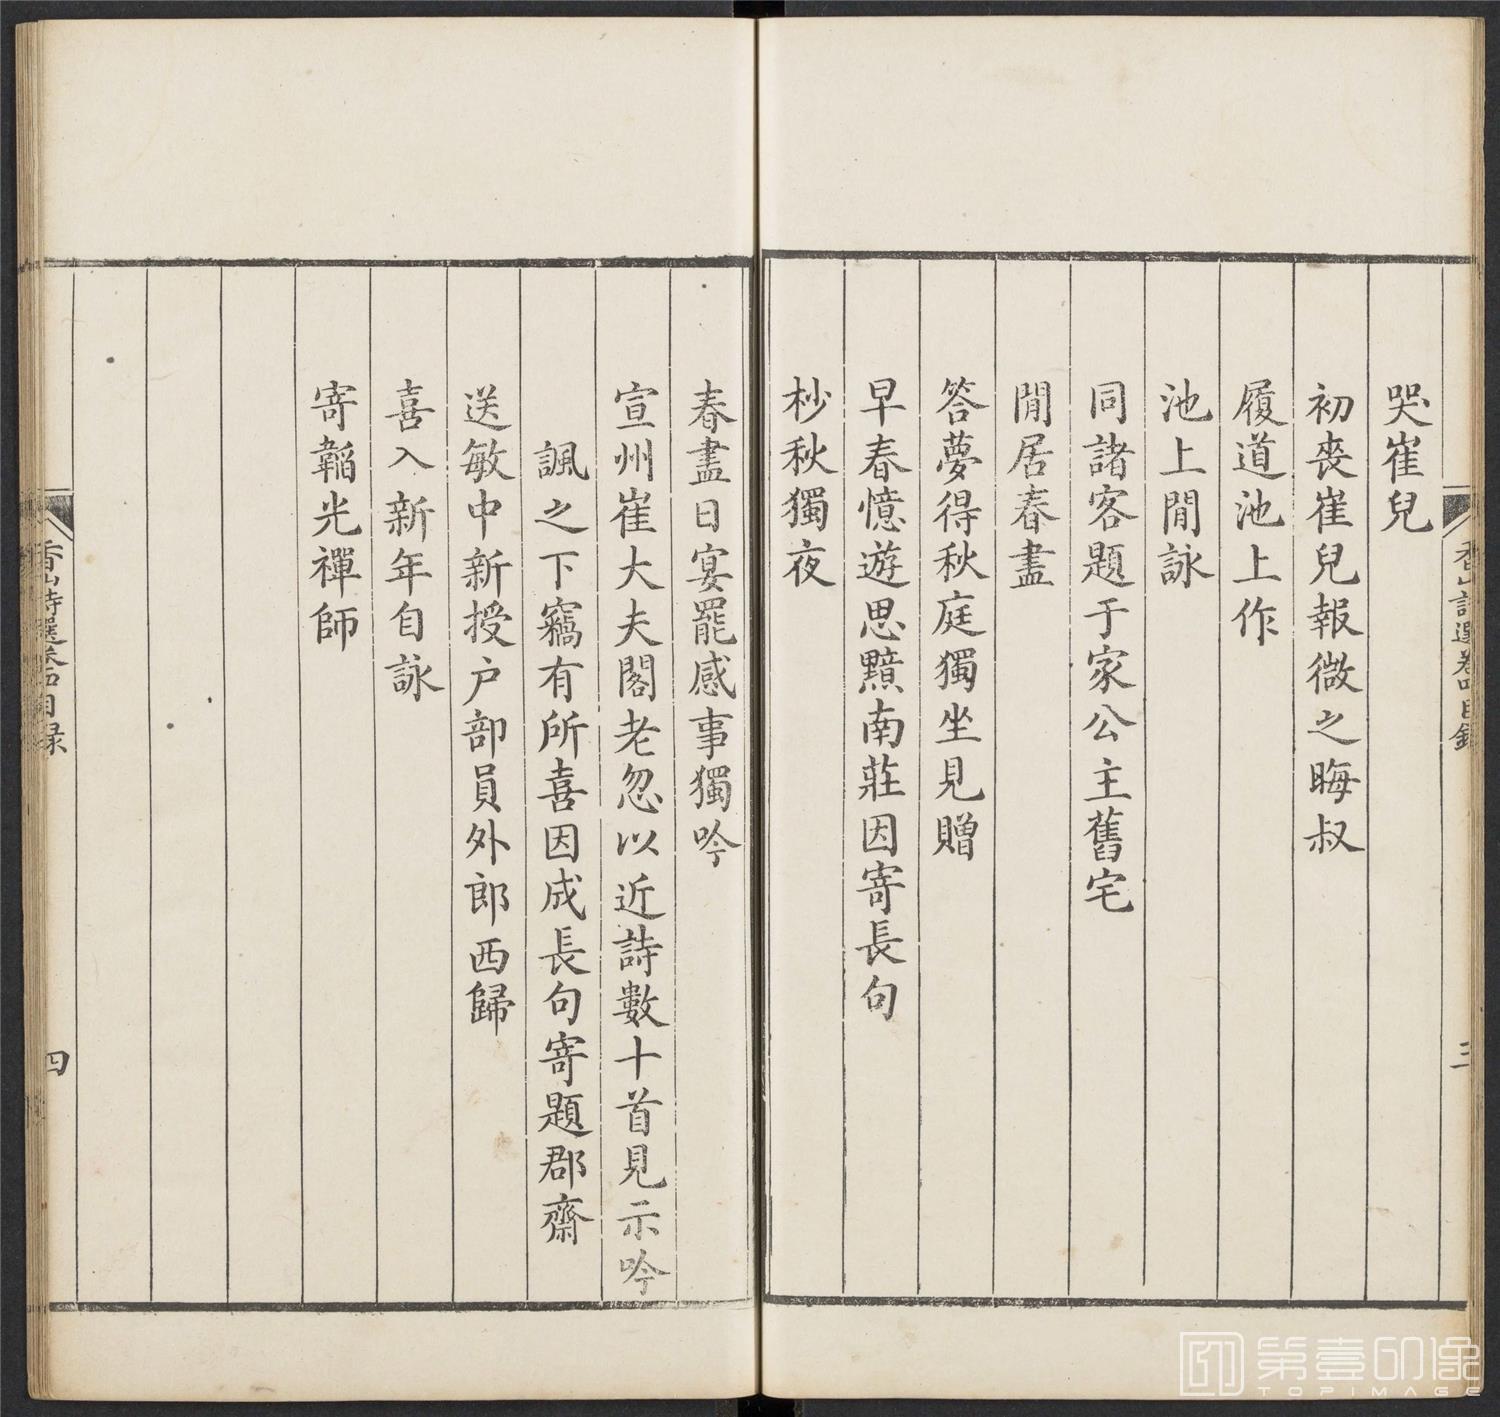 哭崔兒
初喪崔兒報微之晦叔
履道池上作
池上閒詠
同諸客題于家公主舊宅
閒居春盡
答夢得秋庭獨坐見贈
早春憶遊思黯南莊因寄長句
杪秋獨夜
香山詩選卷四目錄
三
春盡日宴罷感事獨吟
宣州崔大夫閣老忽以近詩數十首見示吟
諷之下竊有所喜因成長句寄題郡齋
送敏中新授户部員外郎西歸
喜入新年自詠
寄韜光禪師
香山詩選卷四目録
四
第壹印像
TOPIMAGE